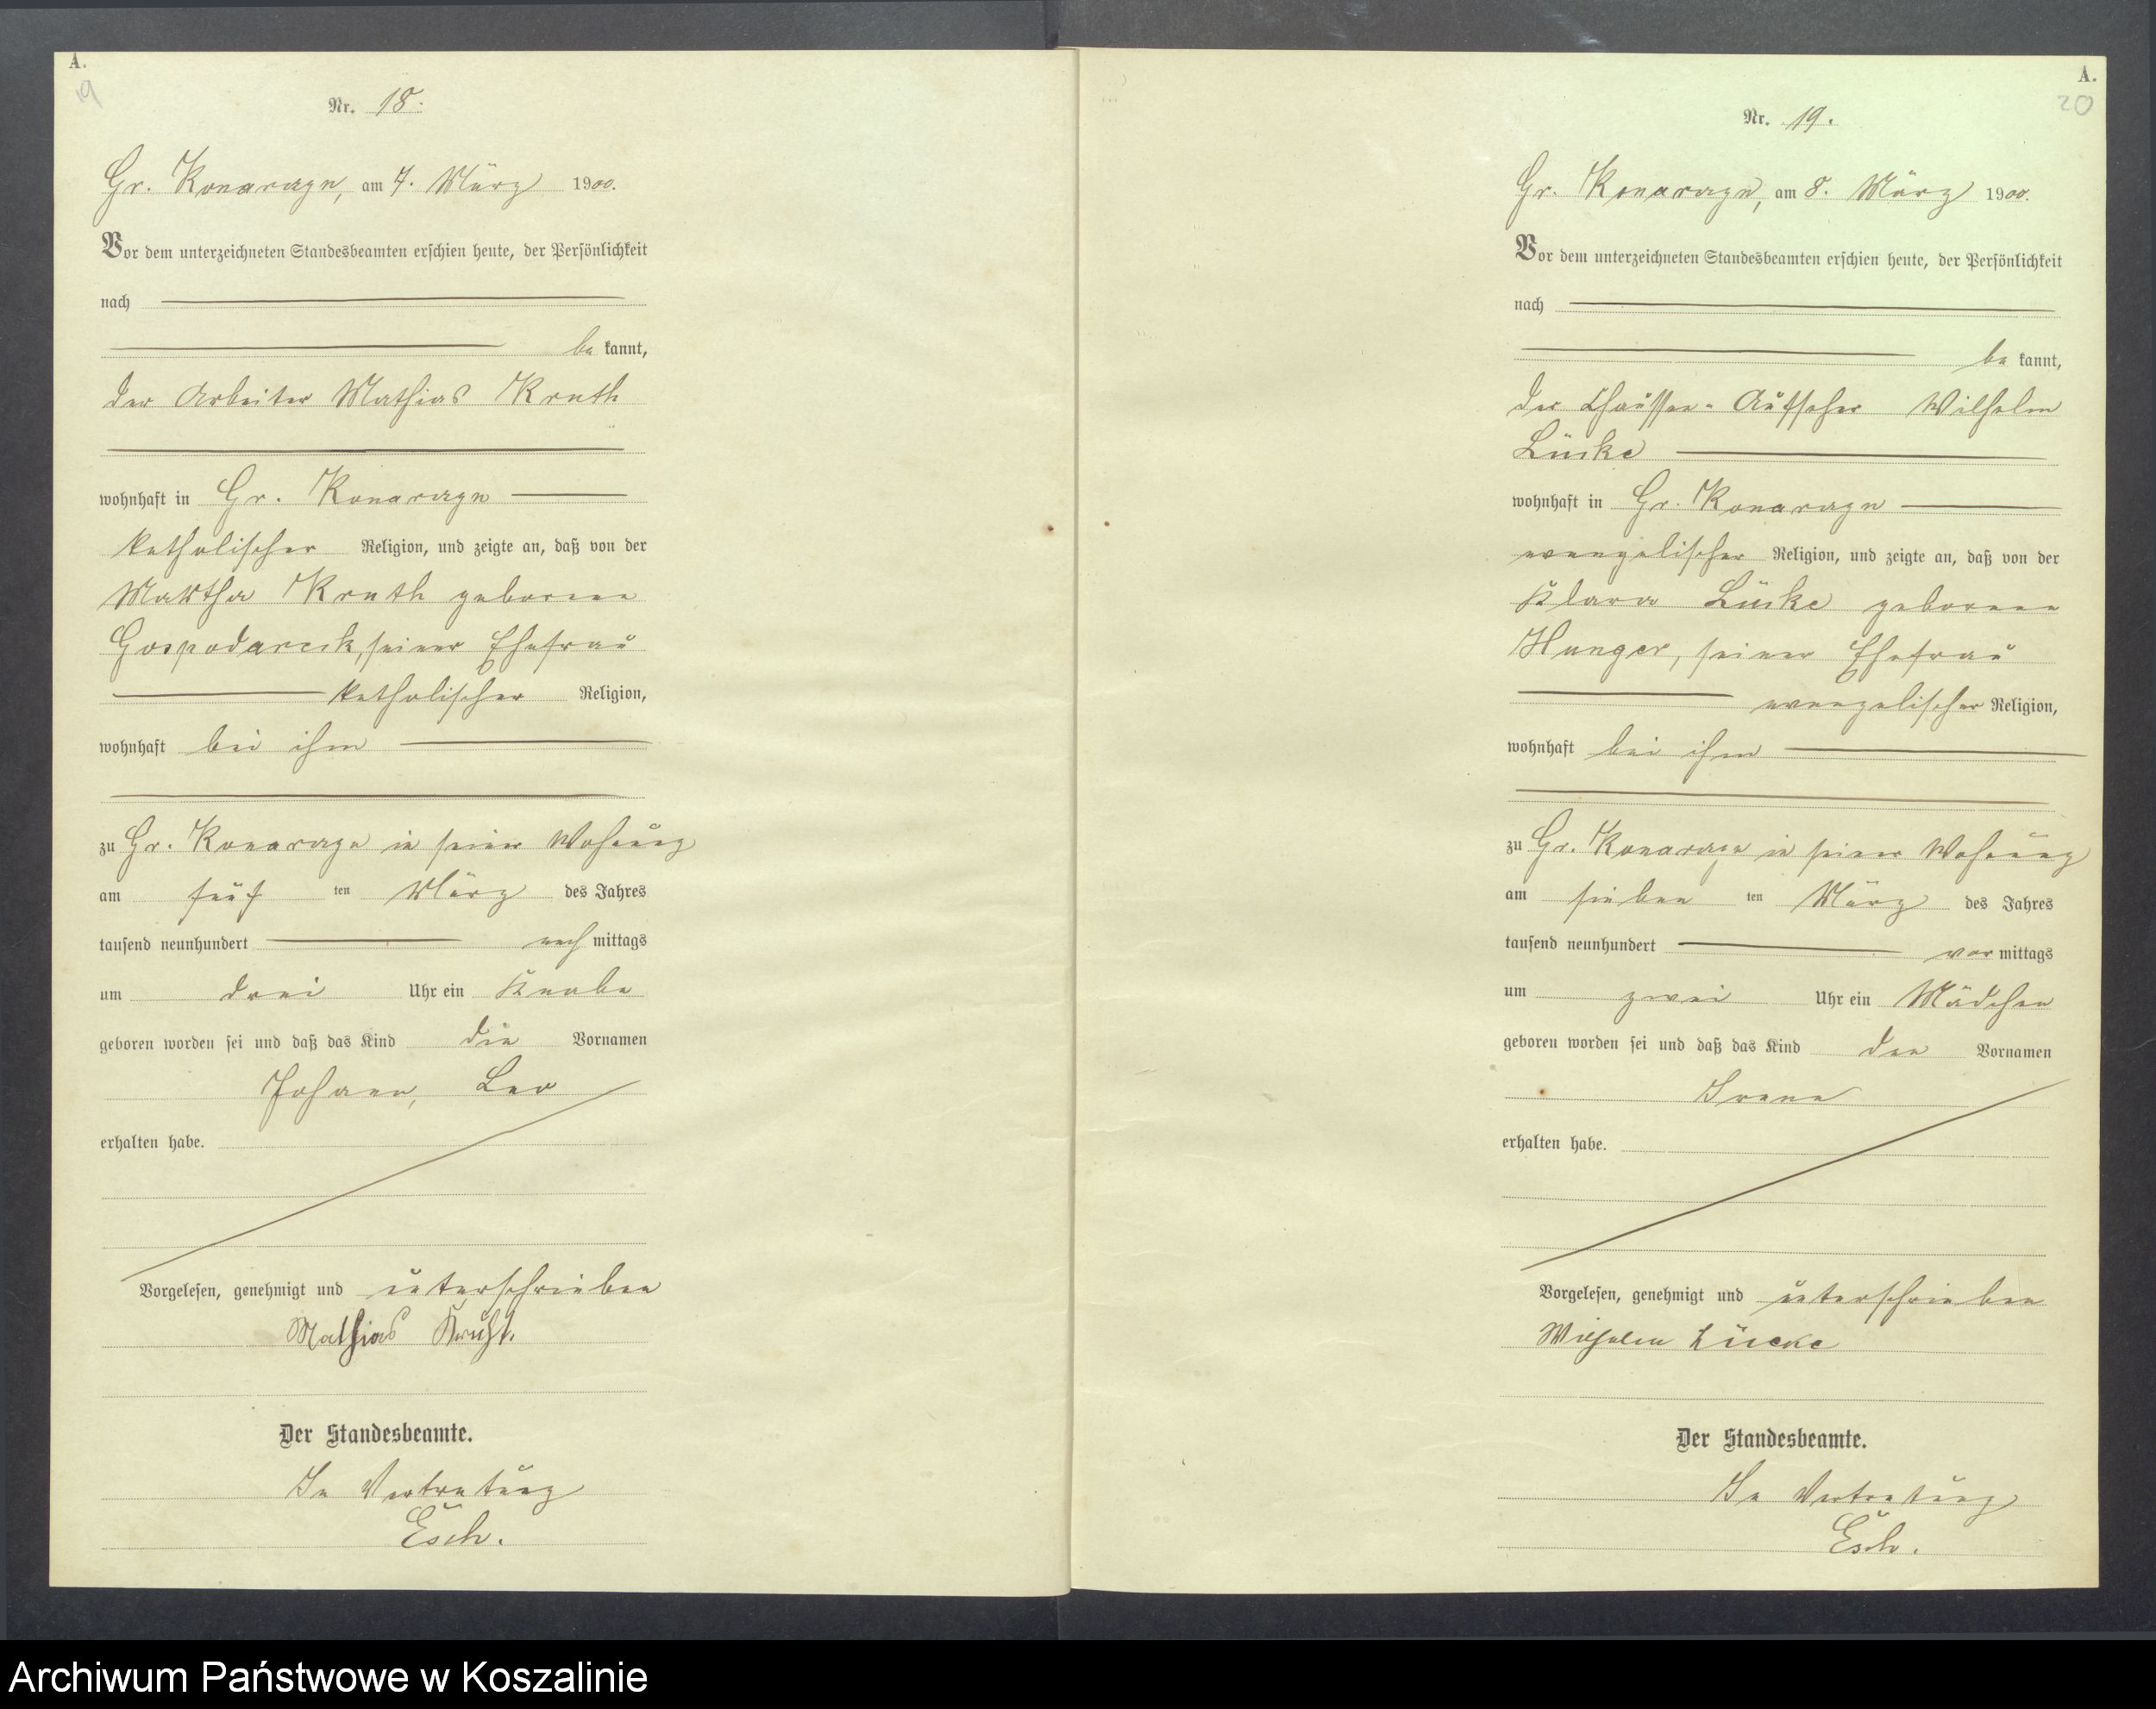 A.
19
Nr. 18.
Gr. Konarzyn, am 7. März 1900.
Vor dem unterzeichneten Standesbeamten erschien heute, der Persönlichkeit
nach
be kannt,
der Arbeiter Mathias Kruth
wohnhaft in Gr. Konarzyn
katholischer Religion, und zeigte an, daß von der
Martha Kruth geborene
Gospodarek, seiner Ehefrau
katholischer Religion,
wohnhaft bei ihm
zu Gr. Konarzyn in seiner Wohnung
am fünf ten März des Jahres
tausend neunhundert nach mittags
um drei Uhr ein Knabe
geboren worden sei und daß das Kind die Vornamen
Johann, Leo
erhalten habe.
Vorgelesen, genehmigt und unterschrieben
Mathias Kruht.
Der Standesbeamte.
In Vertretung
Esch.
A.
20
Nr. 19.
Gr. Konarzyn, am 8. März 1900.
Vor dem unterzeichneten Standesbeamten erschien heute, der Persönlichkeit
nach
be kannt,
der Chaussee-Aufseher Wilhelm
Lücke
wohnhaft in Gr. Konarzyn
evangelischer Religion, und zeigte an, daß von der
Klara Lücke geborene
Hunger, seiner Ehefrau
evangelischer Religion,
wohnhaft bei ihm
zu Gr. Konarzyn in seiner Wohnung
am sieben ten März des Jahres
tausend neunhundert vor mittags
um zwei Uhr ein Mädchen
geboren worden sei und daß das Kind den Vornamen
Irene
erhalten habe.
Vorgelesen, genehmigt und unterschrieben
Wilhelm Lücke
Der Standesbeamte.
In Vertretung
Esch.
Archiwum Państwowe w Koszalinie